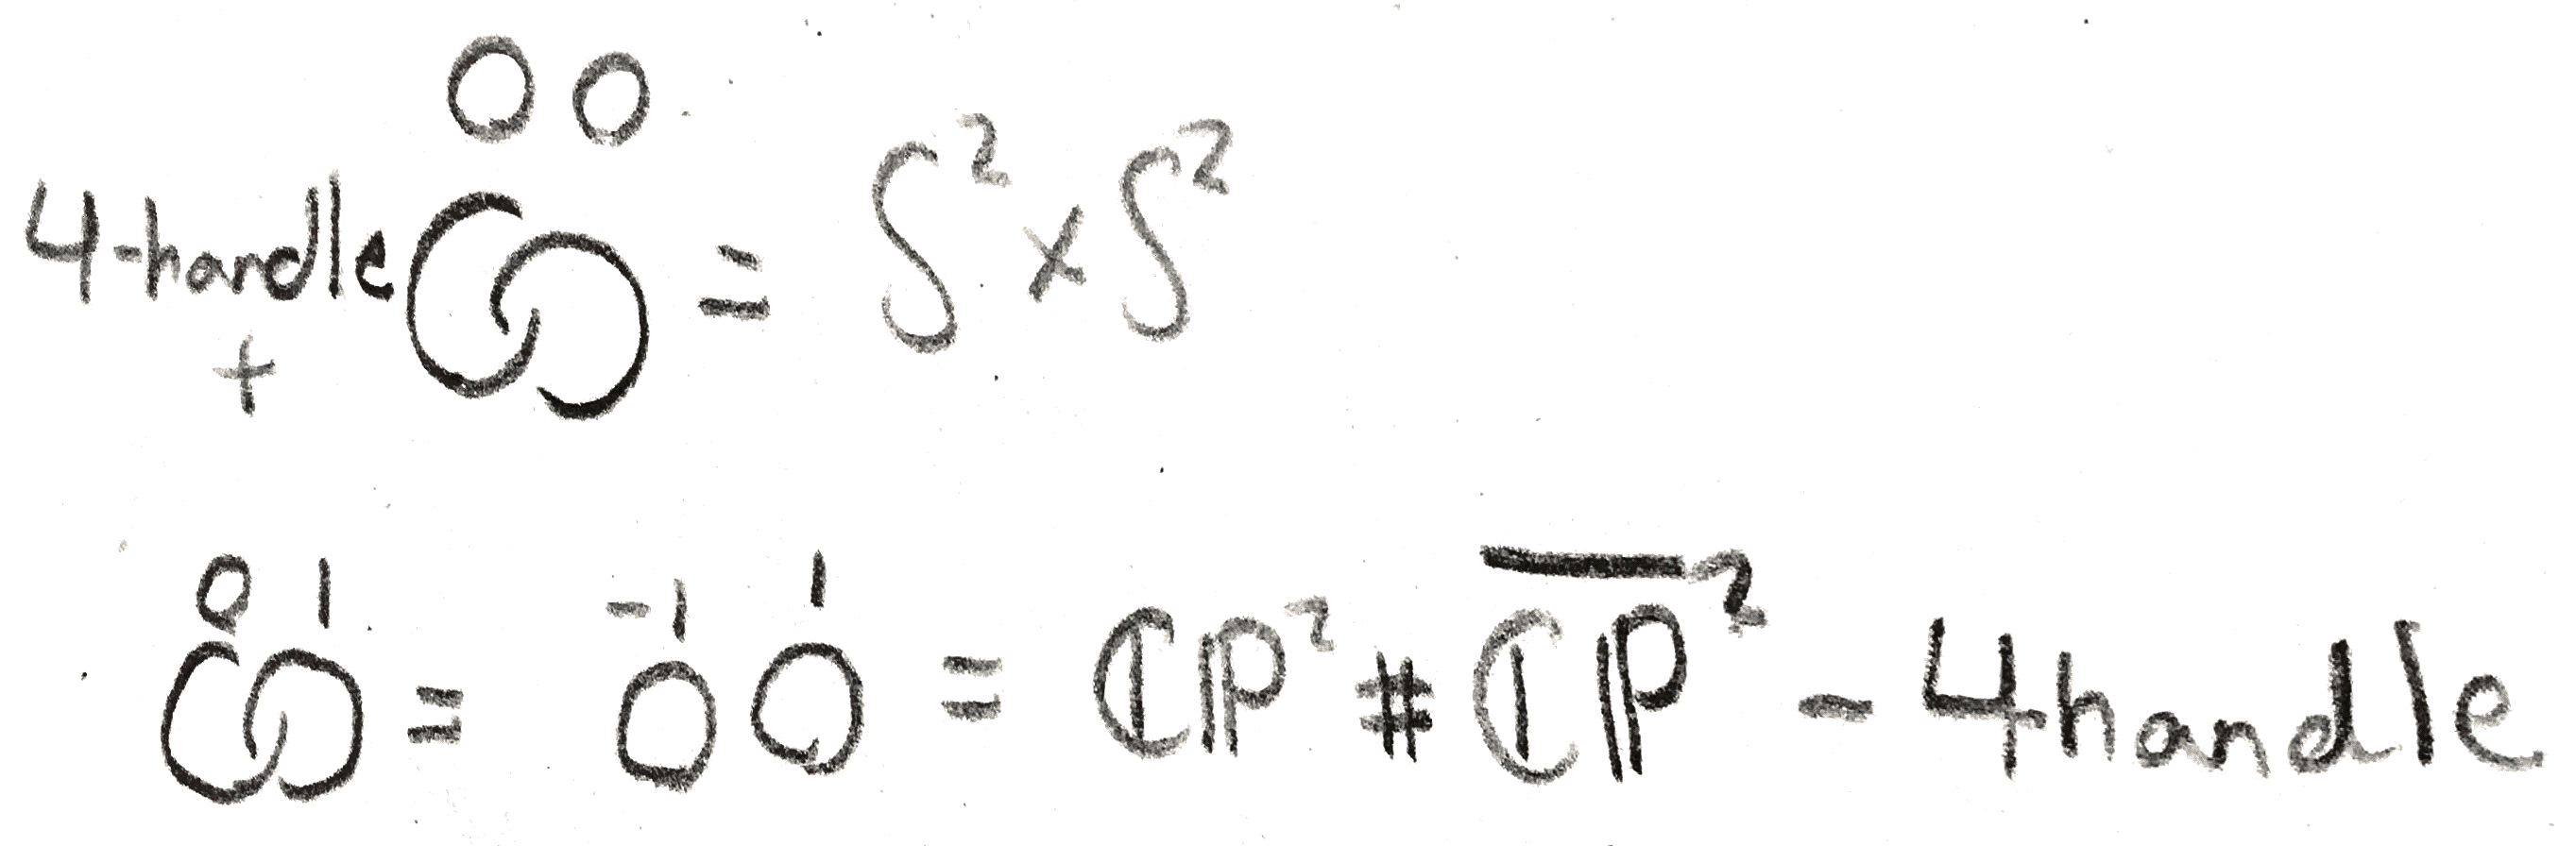 0 0
4-handle = S² x S²
+
0 1 -1 1
= = ℂℙ² # \overline{ℂℙ}² - 4handle